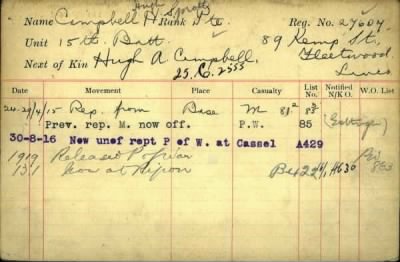 Hugh Sproatt
Name Campbell H. Rank Pte. Reg. No. 27607
Unit 15th Batt. 89 Kemp St.,
Next of Kin Hugh A Campbell, Fleetwood
25.C.2555 Lancs
Date Report Place Casualty List No. Notified N/K O. W.O. List
24-29/4/15 Rep. from Base M 81² 83²
Prev. rep. M. now off. P.W. 85
30-8-16 New unof rept P of W. at Cassel A429
1919 Released P of War
13.1 Now at Ripon B422 H630